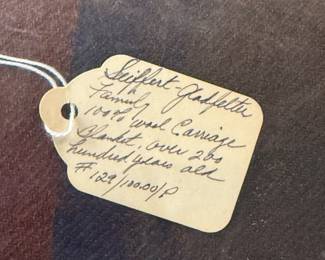 Seiffert-Gladfelter
Family
100% wool Carriage
Blanket, over 200
hundred years old
# 129/100.00/P